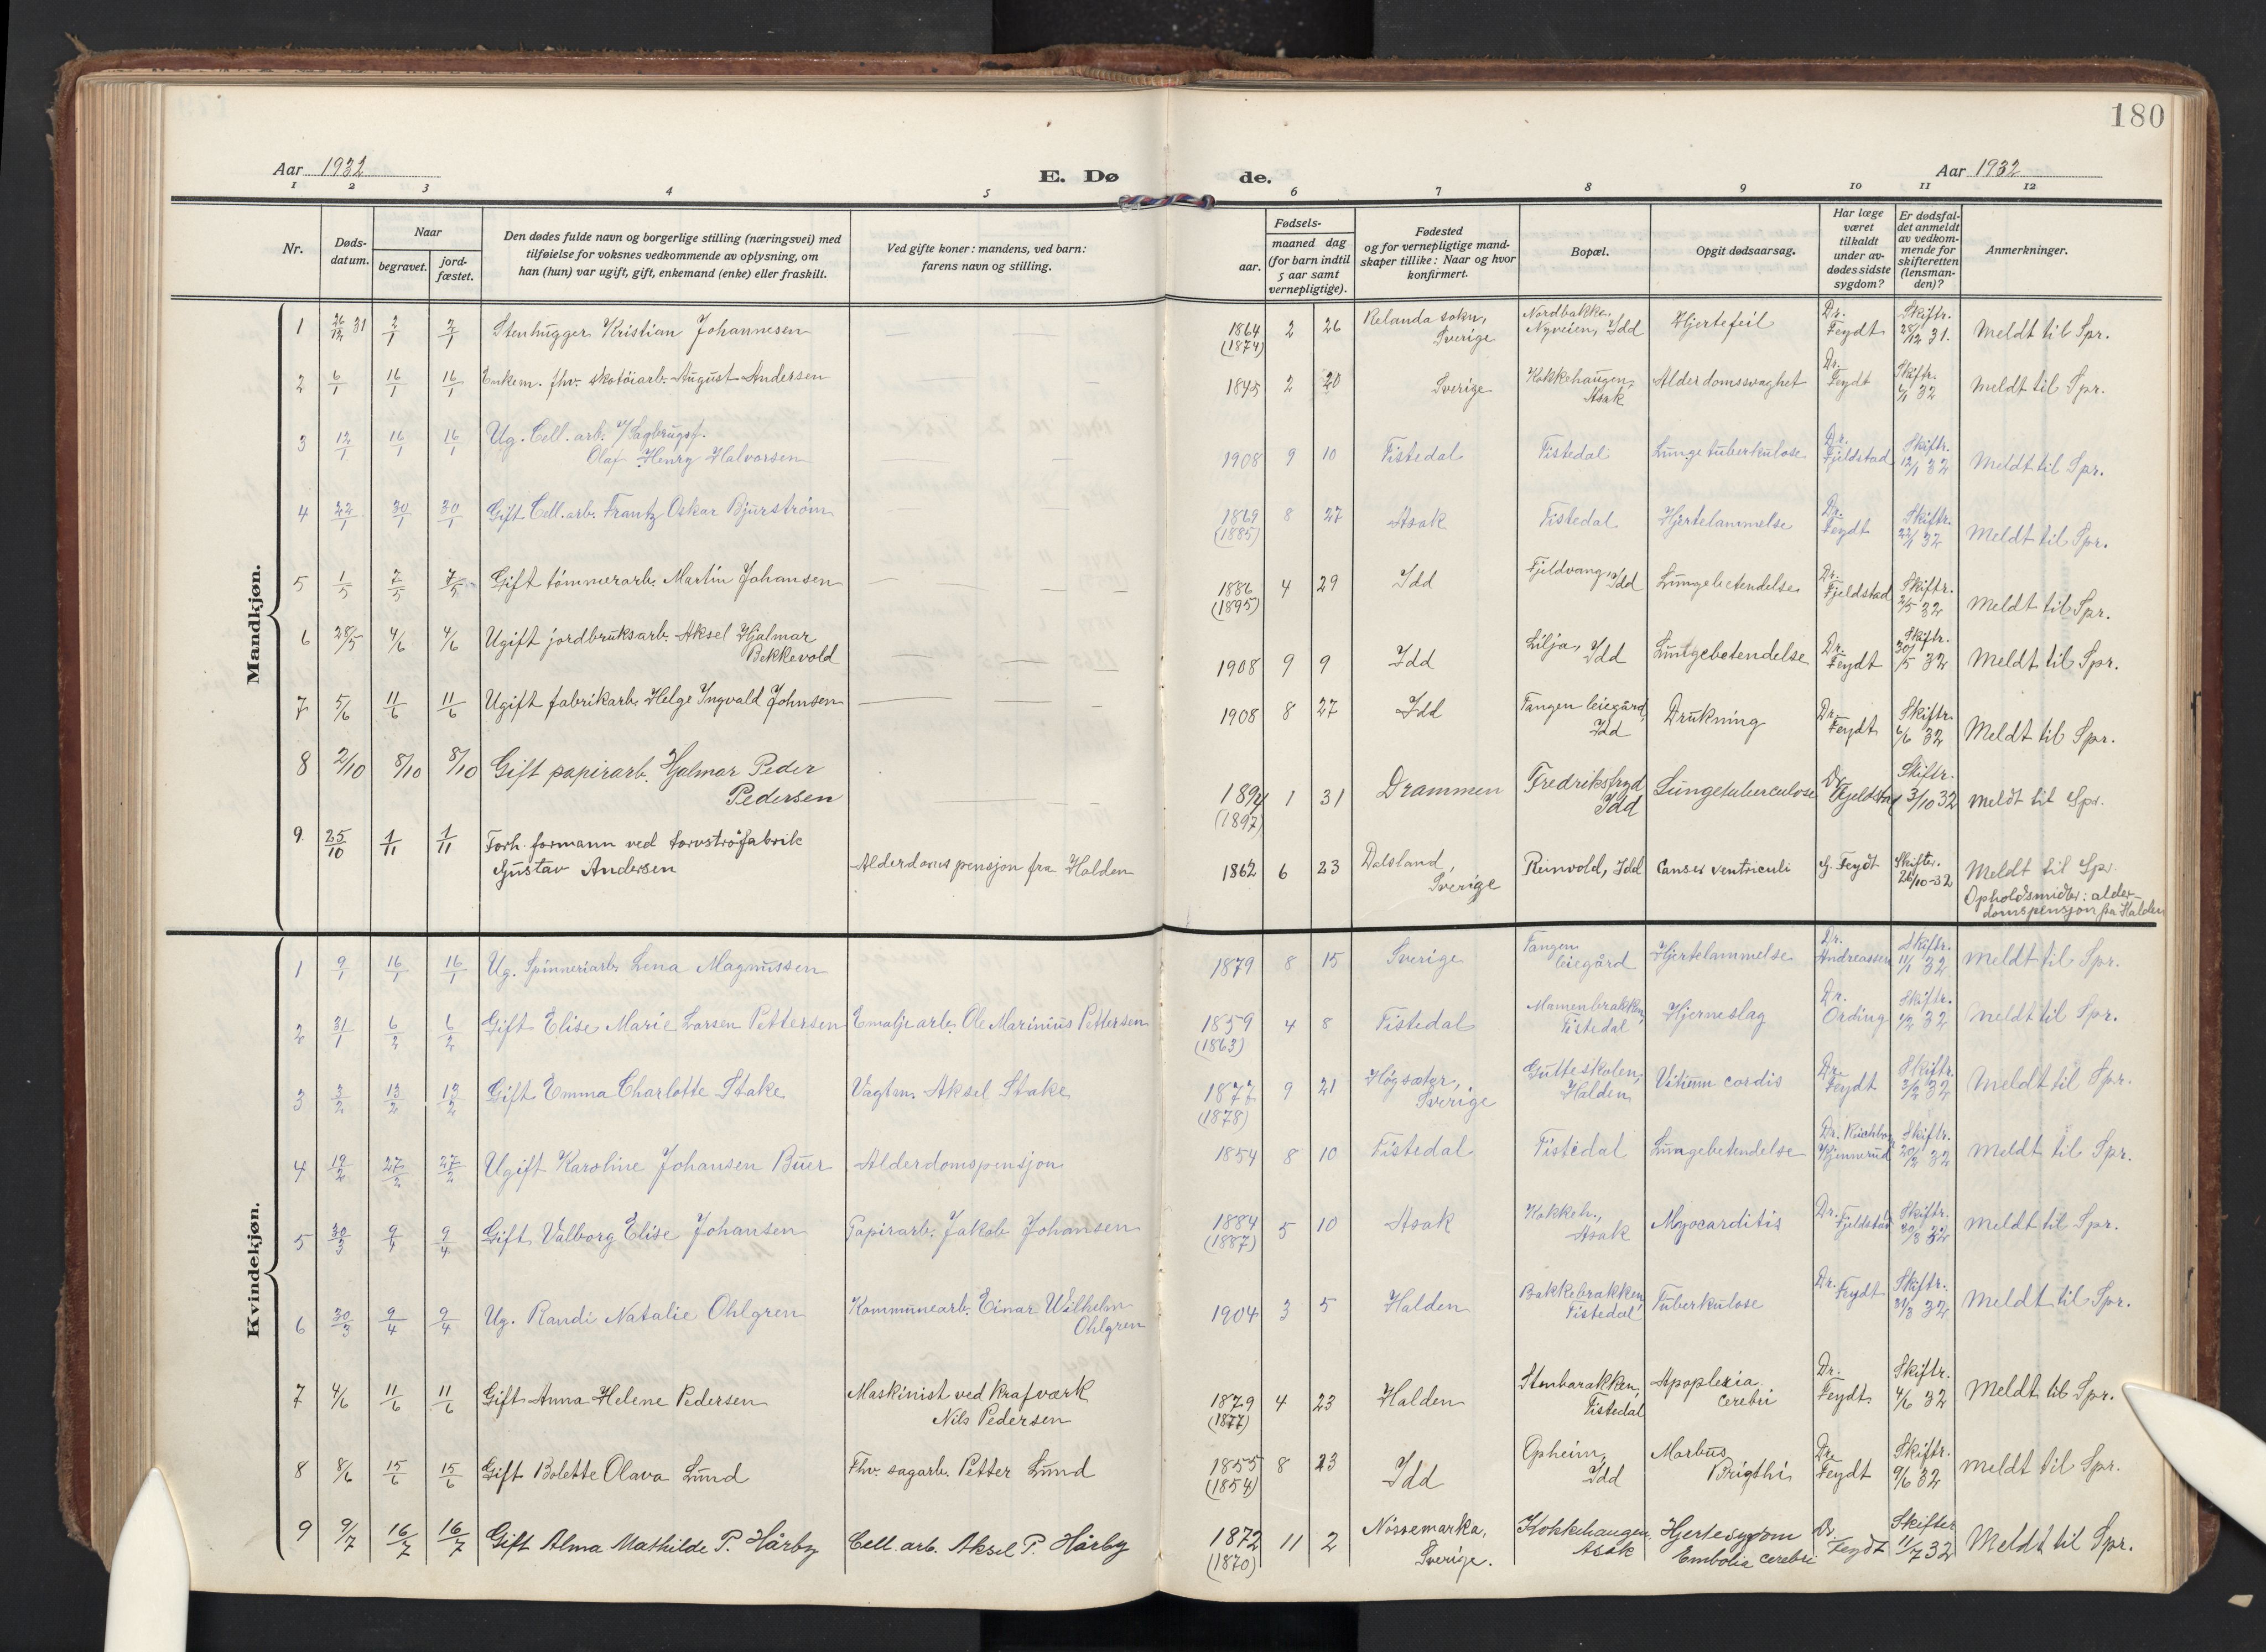 180
Aar 1932
E. Dø
de.
Aar 1932
1 2 3 4 5 6 7 8 9 10 11 12
Nr.
Døds-
datum.
Naar
begravet.
jord-
fæstet.
Den dødes fulde navn og borgerlige stilling (næringsvei) med
tilføielse for voksnes vedkommende av oplysning, om
han (hun) var ugift, gift, enkemand (enke) eller fraskilt.
Ved gifte koner: mandens, ved barn:
farens navn og stilling.
Fødsels-
aar.
maaned dag
(for barn indtil
5 aar samt
vernepligtige).
Fødested
og for vernepligtige mand-
skaper tillike: Naar og hvor
konfirmert.
Bopæl.
Opgit dødsaarsag.
Har læge
været
tilkaldt
under av-
dødes sidste
sygdom?
Er dødsfal-
det anmeldt
av vedkom-
mende for
skifteretten
(lensman-
den)?
Anmerkninger.
Mandkjøn.
1 26/12 31 2/1 2/1 Stenhugger Kristian Johannesen
1864 (1874) 2 26 Relanda sokn, Sverige Nordbakke, Nyveien, Idd Hjertefeil Dr. Feydt Skiftr. 28/12 31. Meldt til Spr.
2 6/1 16/1 16/1 Enkem. fhv. skotöiarb. August Andersen
1845 2 20 Sverige Kokkehaugen, Asak Alderdomssvaghet Dr. Feydt Skiftr. 32 Meldt til Spr.
3 12/1 16/1 16/1 Ug. Cell. arb. Sagbrugsf.
Olaf Henry Halvorsen
1908 9 10 Tistedal Tistedal Lungetuberkulose Dr. Fjeldstad Skiftr. 12/1 32 Meldt til Spr.
4 22/1 30/1 30/1 Gift Cell. arb. Frantz Oskar Bjurström
1869 (1885) 8 27 Asak Tistedal Hjertelammelse Dr. Feydt Skiftr. 22/1 32 Meldt til Spr.
5 1/5 7/5 7/5 Gift tömmerarb. Martin Johansen
1886 (1895) 4 29 Idd Fjeldvang, Idd Lungebetendelse Dr. Fjeldstad Skiftr. 2/5 32 Meldt til Spr.
6 28/5 4/6 4/6 Ugift jordbruksarb. Aksel Hjalmar
Bekkevold
1908 9 9 Idd Lilja, Idd Lungebetendelse Dr. Feydt Skiftr. 30/5 32 Meldt til Spr.
7 5/6 11/6 11/6 Ugift fabrikarb. Helge Ingvald Johnsen
1908 8 27 Idd Tangen leiegård, Idd Drukning Dr. Feydt Skiftr. 6/6 32 Meldt til Spr.
8 2/10 8/10 8/10 Gift papirarb. Hjalmar Peder
Pedersen
1894 (1897) 1 31 Drammen Fredriksfryd Idd Lungetuberculose Dr. Fjeldstad Skiftr. 3/10 32 Meldt til Spr.
9 25/10 1/11 1/11 Forh. formann ved torvströfabrik
Gustav Andersen
Alderdomspensjon fra Halden
1862 6 23 Dalsland, Sverige Reinvold, Idd Canser ventriculi G. Feydt Skifter. 26/10-32 Meldt til Spr.
Opholdsmidler: alder-
domspensjon fra Halden
Kvindekjøn.
1 9/1 16/1 16/1 Ug. Spinneriarb. Lena Magnussen
1879 8 15 Sverige Tangen leiegård Hjertelammelse Dr. Andreassen Skiftr. 11/1 32 Meldt til Spr.
2 31/1 6/2 6/2 Gift Elise Marie Larsen Pettersen Emaljearb. Ole Marinius Pettersen
1859 (1863) 4 8 Tistedal Mamenbrakken, Tistedal Hjerneslag Dr. Ording Skiftr. 1/2 32 Meldt til Spr.
3 3/2 13/2 13/2 Gift Emma Charlotte Stake Vagtm. Aksel Stake
1877 (1878) 9 21 Högsæter, Sverige Gutteskolen, Halden Vitium cordis Dr. Feydt Skiftr. 3/2 32 Meldt til Spr.
4 19/2 27/2 27/2 Ugift Karoline Johansen Buer Alderdomspensjon
1854 8 10 Tistedal Tistedal Lungebetendelse Dr. Skiftr. 20/2 32 Meldt til Spr.
5 30/3 9/4 9/4 Gift Valborg Elise Johansen Papirarb. Jakob Johansen
1884 (1887) 5 10 Asak Kokkeh., Asak Myocarditis Dr. Fjeldstad Skiftr. 30/3 32 Meldt til Spr.
6 30/3 9/4 9/4 Ug. Randi Natalie Ohlgren Kommunearb. Einar Wilhelm
Ohlgren
1904 3 5 Halden Bakkebrakken, Tistedal Tuberkulose Dr. Feydt Skiftr. 31/3 32 Meldt til Spr.
7 4/6 11/6 11/6 Gift Anna Helene Pedersen Maskinist ved Krafværk
Nils Pedersen
1879 (1877) 4 23 Halden Stenbarakken, Tistedal Apoplexia cerebri Dr. Feydt Skiftr. 4/6 32 Meldt til Spr.
8 8/6 15/6 15/6 Gift Bolette Olava Lund Fhv. sagarb. Petter Lund
1855 (1854) 8 23 Idd Opheim, Idd Morbus Brigthi Dr. Feydt Skiftr. 9/6 32 Meldt til Spr.
9 9/7 16/7 16/7 Gift Alma Mathilde P. Hårby Cell. arb. Aksel P. Hårby
1872 (1870) 11 2 Nössemarka, Sverige. Kokkehaugen, Asak Hjertesygdom Embolia cerebri Dr. Feydt Skifter 11/7 32 Meldt til Spr.